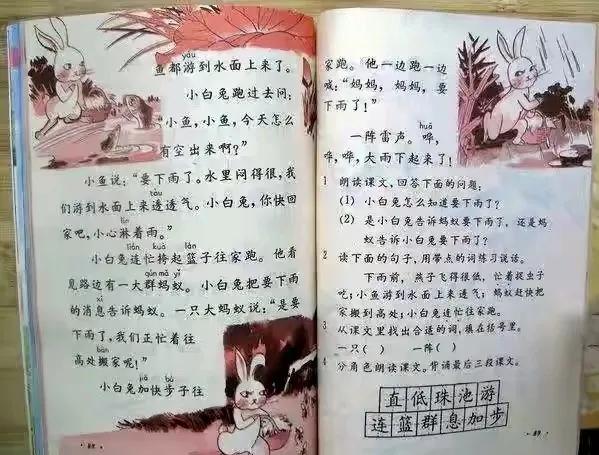 yóu
鱼都游到水面上来了。
小白兔跑过去问：
“小鱼，小鱼，今天怎么
有空出来啊？”
小鱼说：“要下雨了。水里闷得很，我
tòu
们游到水面上来透透气。小白兔，你快回
lín
家吧，小心淋着雨。”
lián kuà lán
小白兔连忙挎起篮子往家跑。他看
qún mǎ yǐ
见路边有一大群蚂蚁。小白兔把要下雨
xī
的消息告诉蚂蚁。一只大蚂蚁说：“是要
下雨了，我们正忙着往
高处搬家呢！”
jiā bù
小白兔加快步子往
· 88 ·
家跑。他一边跑一边
喊：“妈妈，妈妈，要
下雨了！”
huā
一阵雷声。哗，
哗，哗，大雨下起来了！
1 朗读课文，回答下面的问题：
(1) 小白兔怎么知道要下雨了？
(2) 是小白兔告诉蚂蚁要下雨了，还是蚂
蚁告诉小白兔要下雨了？
2 读下面的句子，用带点的词练习说话。
下雨前，燕子飞得很低，忙着捉虫子
吃；小鱼游到水面上来透气；蚂蚁赶快把
家搬到高处；小白兔连忙往家跑。
3 从课文里找出合适的词，填在括号里。
一只（ ） 一阵（ ）
4 分角色朗读课文。背诵最后三段课文。
直低珠池游
连篮群息加步
· 89 ·